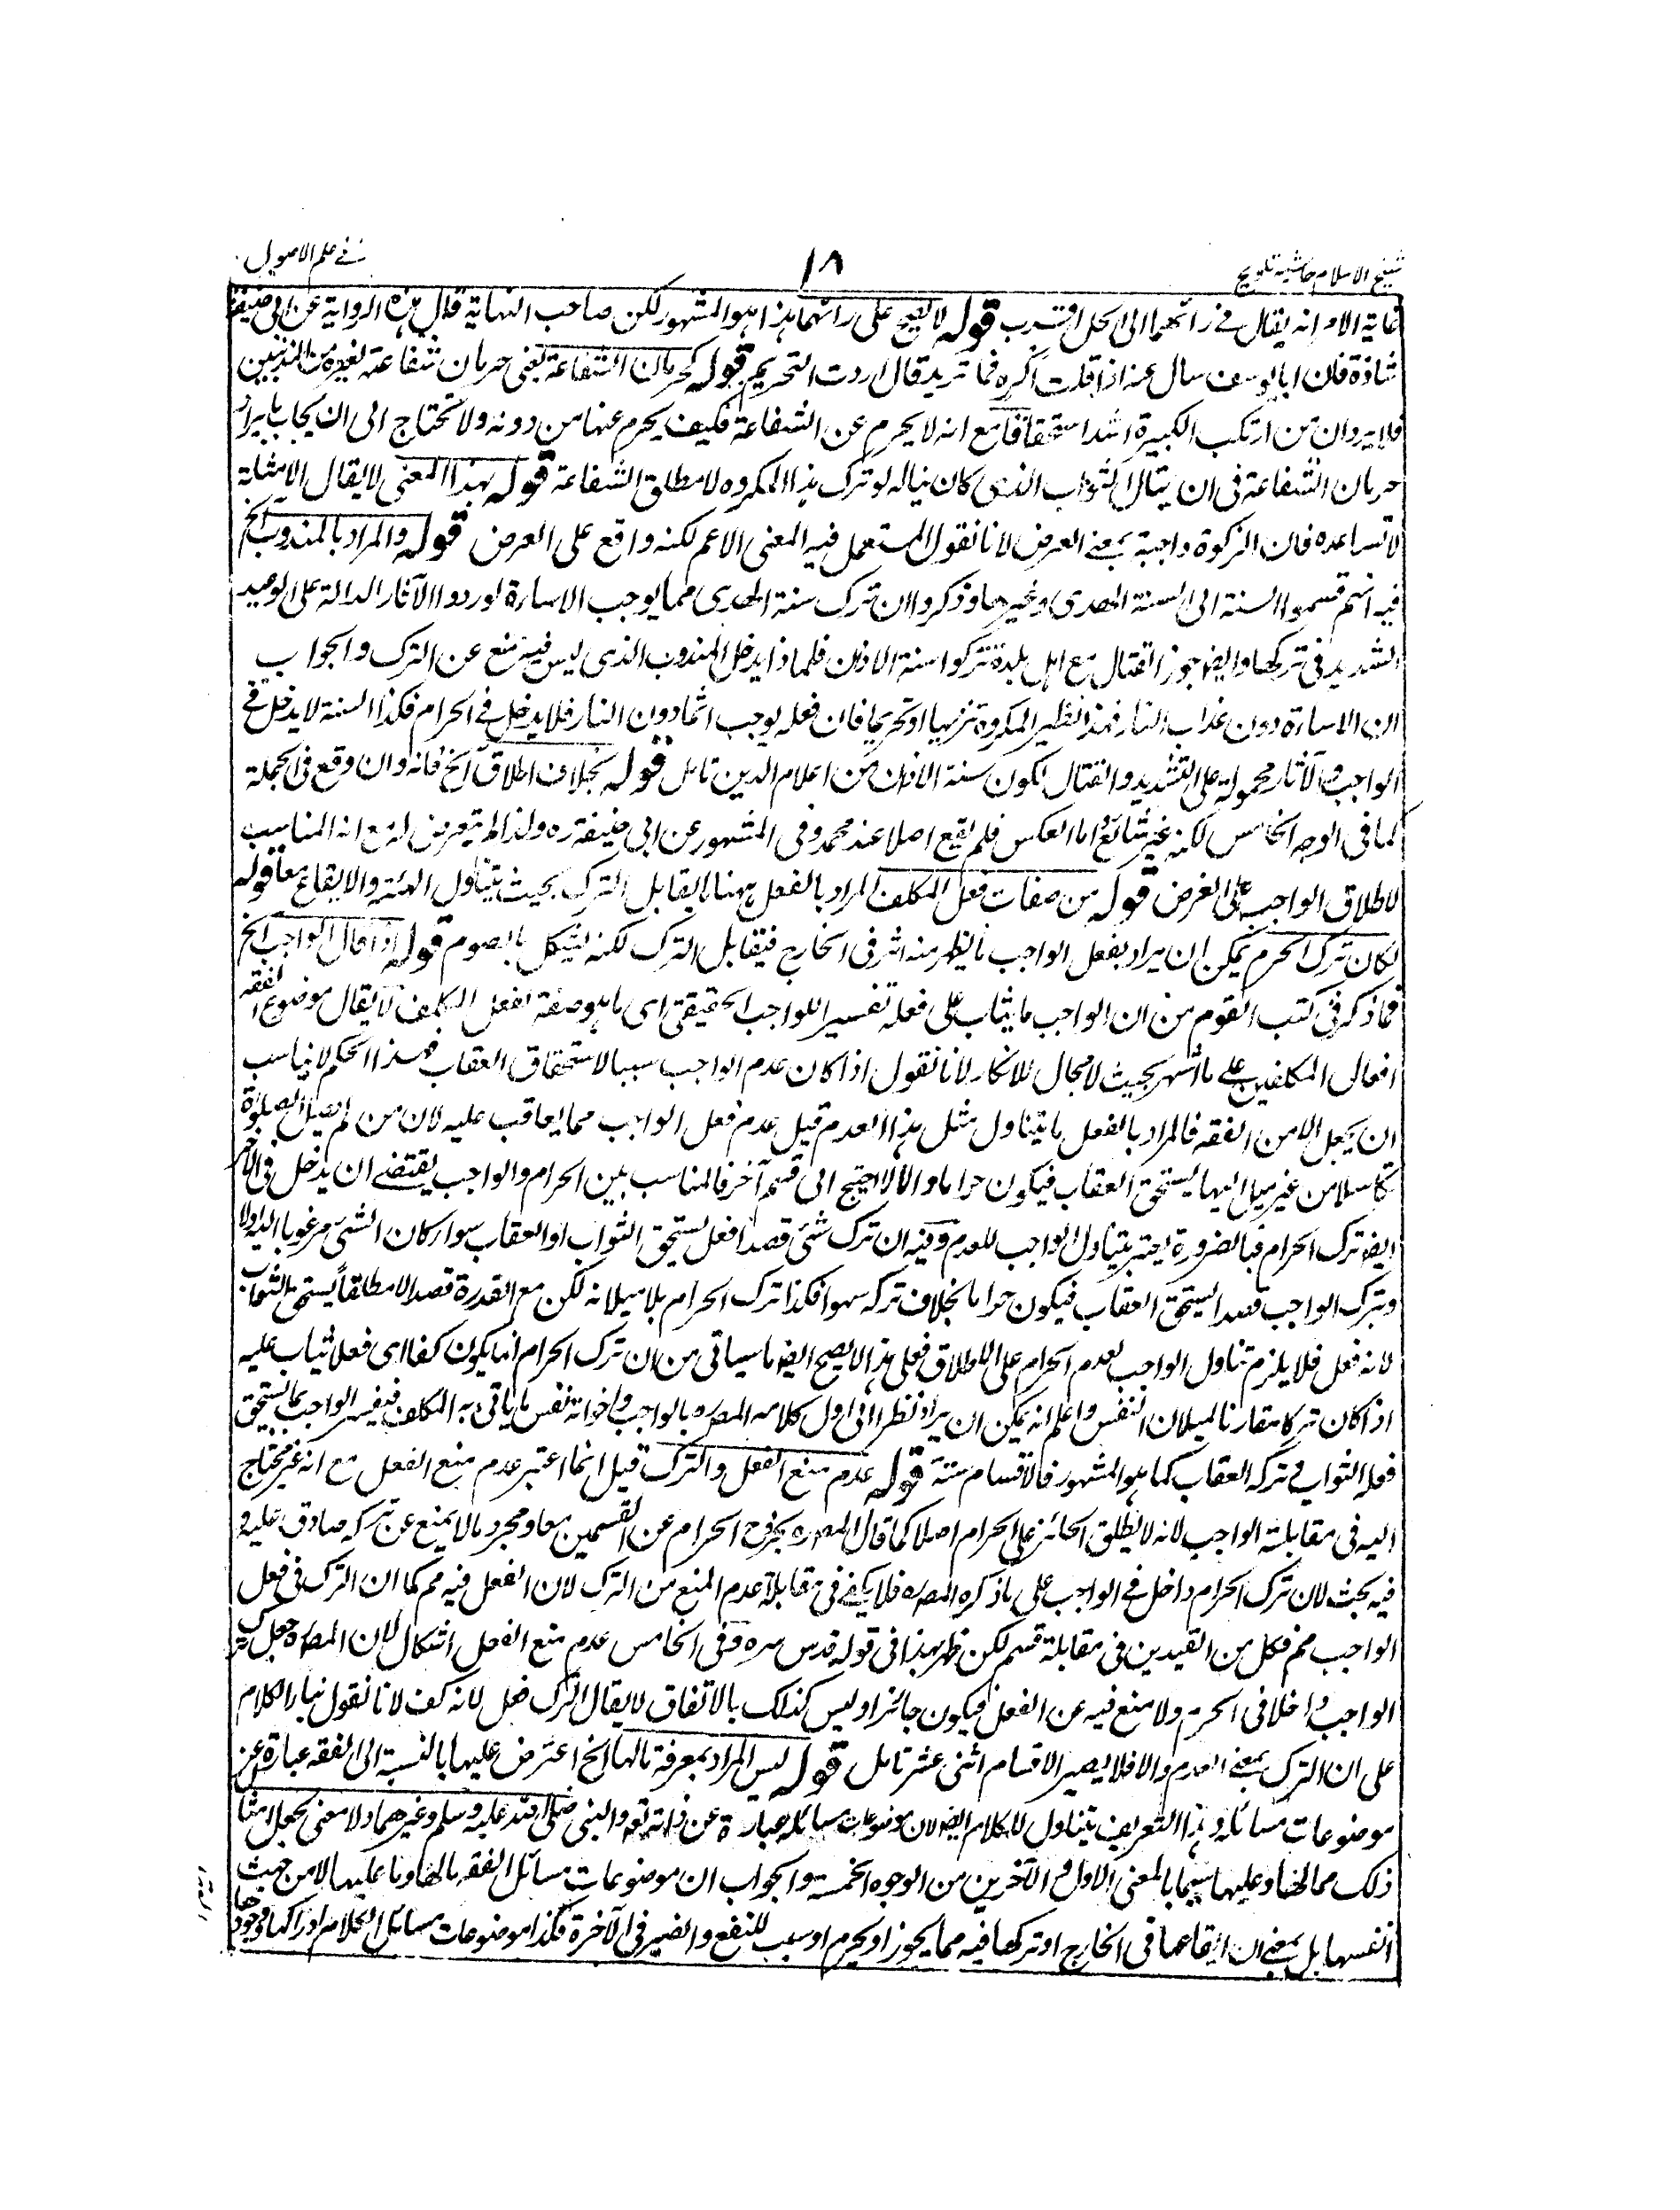 شيخ الاسلام حاشيه تلويح
١٨
في علم الاصول
غاية الامر انه يقال في رأيهما الى الحل اقرب قوله لا يصح على رأيهما هذا هو المشهور لكن صاحب النهاية قال هذه الرواية عن ابى حنيفة
شاذة فان ابا يوسف سال عنه اذا قلت اكره فما تريد قال اردت التحريم قوله كحرمان الشفاعة يعنى حرمان شفاعته لغيره من المذنبين
فلا يرد ان من ارتكب الكبيرة اشد استحقاقا مع انه لا يحرم عن الشفاعة فكيف يحرم عنها من دونه ولا تحتاج الى ان يجاب بايراد
حرمان الشفاعة فى ان ينال الثواب الذى كان يناله لو ترك هذا المكروه لا مطلق الشفاعة قوله بهذا المعنى لا يقال الامثلة
لا تساعده فان الزكوة واجبة بمعنے الفرض لانا نقول المستعمل فيه المعنى الاعم لكنه واقع على الفرض قوله والمراد بالمندوب الخ
فيه انهم قسموا السنة الى السنة الهدى وغيرها وذكروا ان ترك سنة الهدى مما يوجب الاساءة اوردوا الآثار الدالة على الوعيد
الشديد فى تركها وايضا جوز القتال مع اهل بلدة تركوا سنة الاذان فلماذا يدخل المندوب الذى ليس فيه منع عن الترك والجواب
ان الاساءة دون عذاب النار فهذا نظير المكروه تنزيها او تحريما فان فعله يوجب اثما دون النار فلا يدخل فے الحرام فكذا السنة لا يدخل فے
الواجب والآثار محمولة على التشديد والقتال لكون سنة الاذان من اعلام الدين تامل قوله بخلاف اطلاق الخ فانه وان وقع فى الجملة
كما فى الوجه الخامس لكنه غير شائع واما العكس فلم يقع اصلا عند محمد وفى المشهور عن ابى حنيفة ره ولذا لم يتعرض له مع انه المناسب
لاطلاق الواجب على الفرض قوله من صفات فعل المكلف المراد بالفعل ههنا ما يقابل الترك بحيث يتناول الهيئة والايقاع معا قوله
لكان ترك الحرم يمكن ان يراد بفعل الواجب ما يظهر منه اثر فى الخارج فيقابل الترك لكنه يشكل بالصوم قوله اذ افعال الواجب الخ
فما ذكر فى كتب القوم من ان الواجب ما يثاب على فعله تفسير للواجب الحقيقى اى ما هو صفة لفعل المكلف لا يقال موضوع الفقه
افعال المكلفين على ما اشتهر بحيث لا مجال للانكار لانا نقول اذا كان عدم الواجب سببا لاستحقاق العقاب فهذا الحكم لا يناسب
ان يجعل الا من الفقه فالمراد بالفعل ما يتناول مثل هذا العدم قيل عدم فعل الواجب مما يعاقب عليه لان من لم يصل الصلوة
تكاسلا من غير ميل اليها يستحق العقاب فيكون حراما والا لاحتيج الى قسم آخر فالمناسب بين الحرام والواجب يقتضے ان يدخل فى الاخير
ايضا ترك الحرام فبالضرورة يعتبر تناول الواجب للعدم وفيه ان ترك شئ قصدا فعل يستحق الثواب او العقاب سواء كان الشئ مرغوبا اليه اولا
وبترك الواجب قصدا يستحق العقاب فيكون حراما بخلاف تركه سهوا فكذا ترك الحرام بلا ميلانه لكن مع القدرة قصدا لا مطلقاً يستحق الثواب
لانه فعل فلا يلزم تناول الواجب لعدم الحرام على الاطلاق فعلى هذا لا يصح ايضا ما سياتى من ان ترك الحرام انما يكون كفا اى فعلا يثاب عليه
اذا كان تركا مقارنا لميلان النفس واعلم انه يمكن ان يراد نظرا الى اول كلام المصره بالواجب واخواته نفس ما ياتى به المكلف فيفسر الواجب بما يستحق
فعله الثواب وفے تركه العقاب كما هو المشهور فالاقسام ستة قوله عدم منع الفعل والترك قيل انما اعتبر عدم منع الفعل مع انه غير محتاج
اليه فى مقابلة الواجب لانه لا يطلق الجائز على الحرام اصلا كما قال المصره بخروج الحرام عن القسمين معا ومجرد ما لا يمنع عن تركه صادق عليه و
فيه بحث لان ترك الحرام داخل فے الواجب على ما ذكره المصره فلا يكفے فى مقابلة عدم المنع من الترك لان الفعل فيه مم كما ان الترك فى فعل
الواجب مم فكل من القيدين فى مقابلة قسم لكن ظهر بهذا فى قوله قدس سره وفى الخامس عدم منع الفعل اشكال لان المصره جعل ترك
الواجب داخلا فى الحرم ولا منع فيه عن الفعل فيكون جائزا وليس كذلك بالاتفاق لا يقال الترك فعل لانه كف لانا نقول بناء الكلام
على ان الترك بمعنے العدم والا فلا يصير الاقسام اثنى عشر تامل قوله ليس المراد بمعرفة مالها الخ اعترض عليه ابا لنسبة الى الفقه عبارة عن
موضوعات مسائله وهذا التعريف يتناول للكلام ايضا لان موضوعات مسائله عبارة عن ذاته تعه والنبى صلى الله عليه وسلم وغيرهما ولا معنى لجعل امثال
ذلك مما لها وعليها سيما بالمعنى الاول والآخرين من الوجوه الخمسة والجواب ان موضوعات مسائل الفقه مالها وما عليها لا من حيث
انفسها بل بمعنے ان ايقاعها فى الخارج او تركها فيه مما يجوز او يحرم او سبب للنفع والضير فى الآخرة فكذا موضوعات مسائل الكلام ادراكها ووجودها